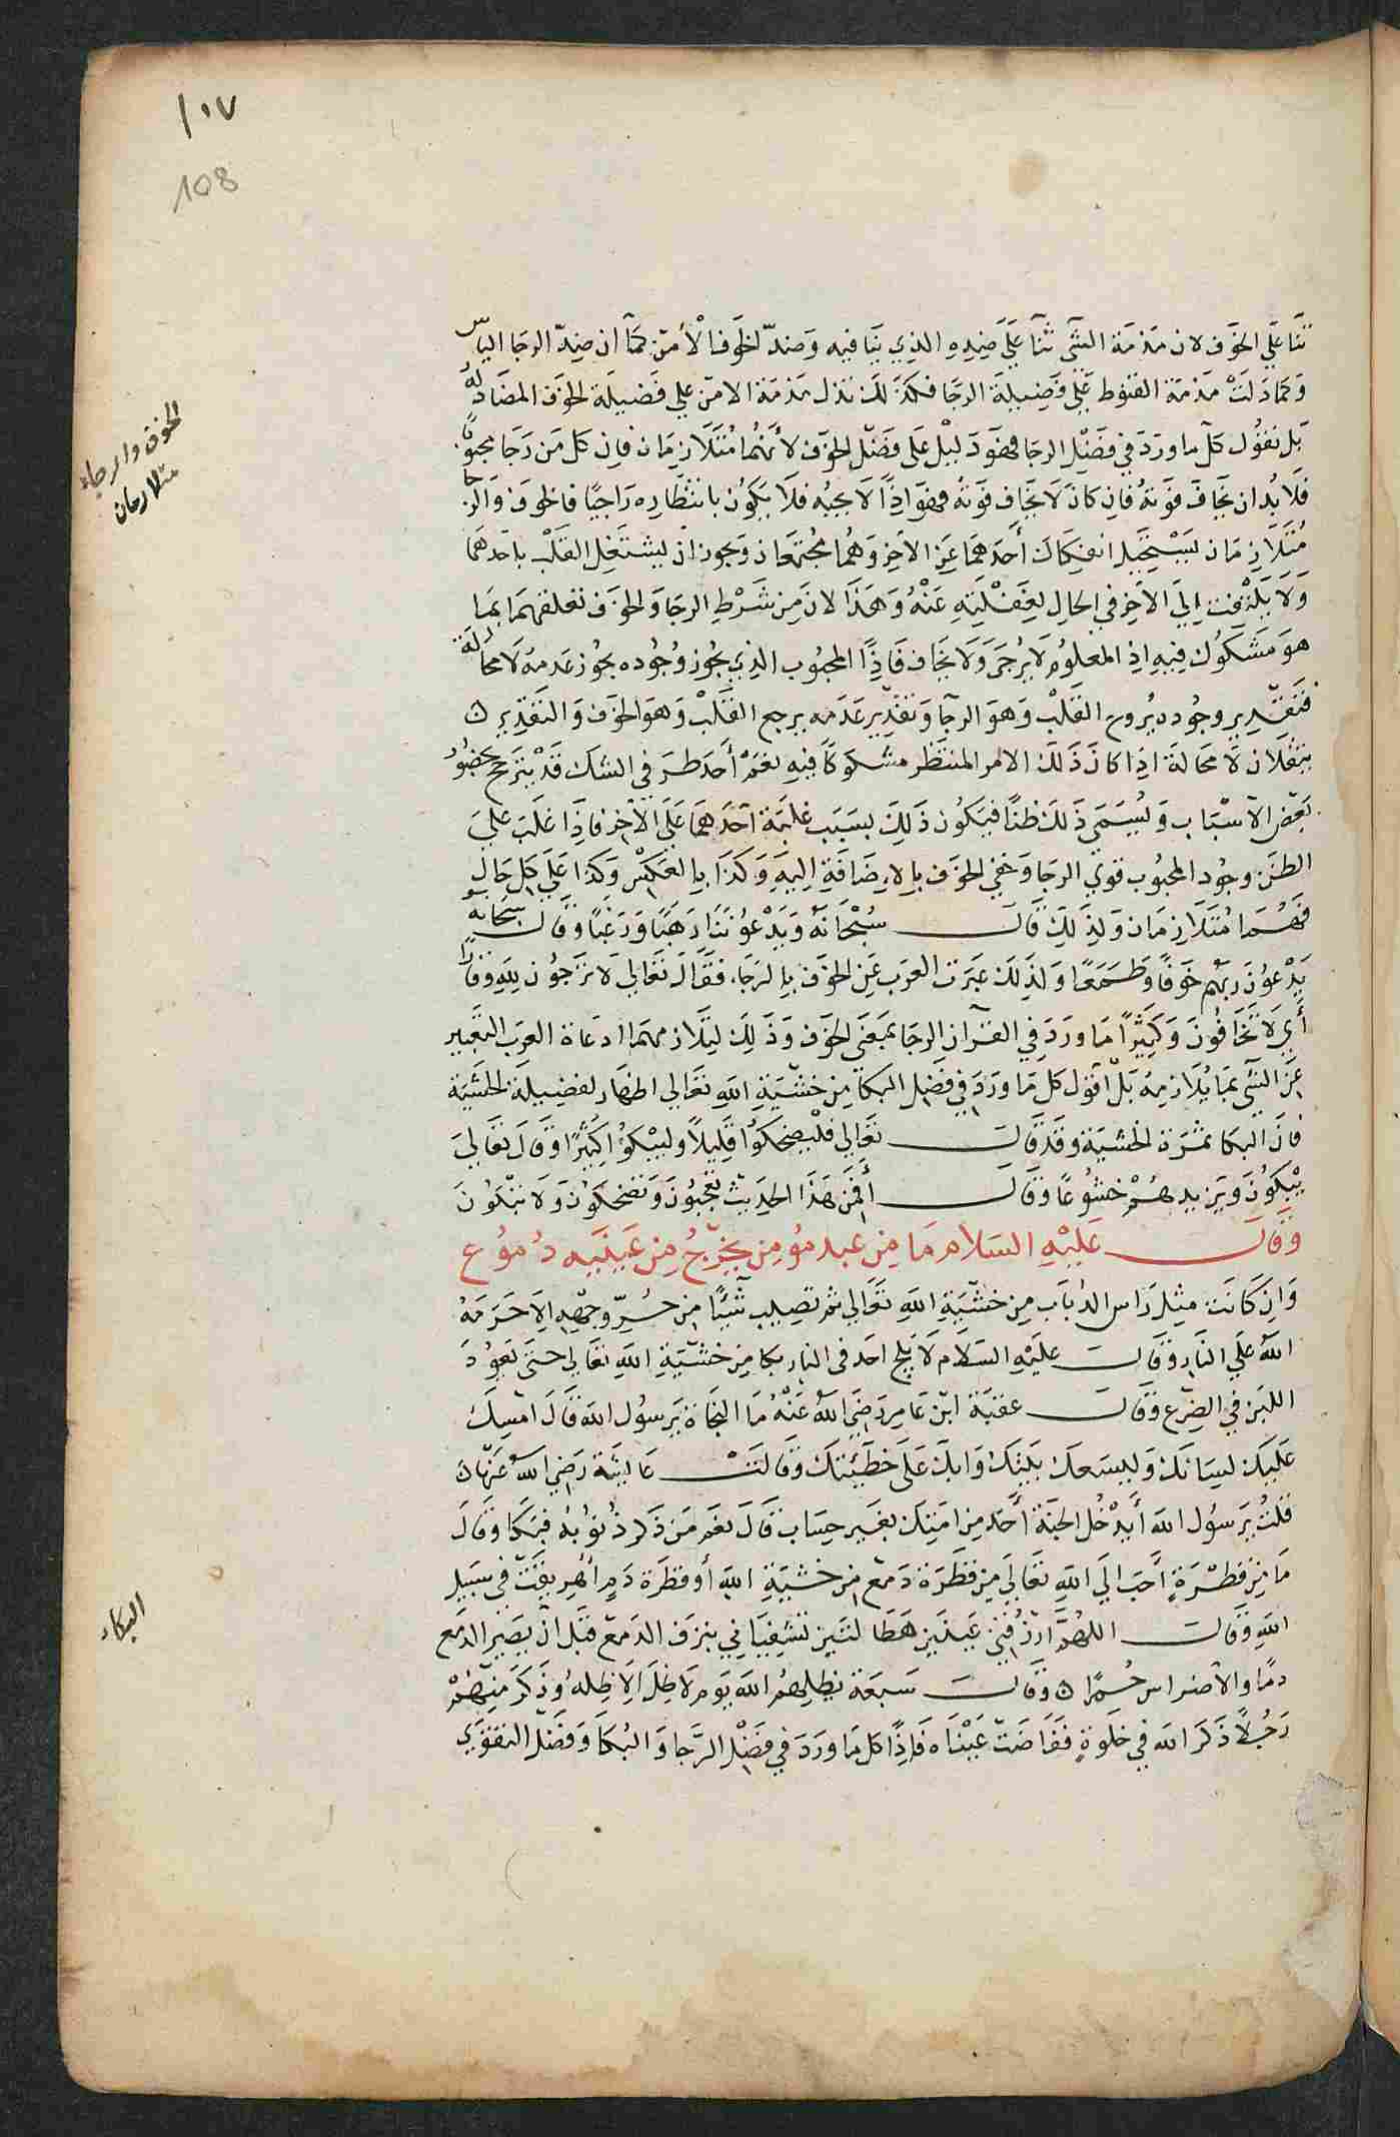 ١٠٧
108
ثنا علي الخوف لان مذمة الشي ثنا علي ضده الذي ينافيه وضد الخوف الأمن كما ان ضد الرجا الياس
وكما دلت مذمة القنوط علي فضيلة الرجا فكذلك تدل مذمة الامن علي فضيلة الخوف المضاد له
بل نقول كل ما ورد في فضل الرجا فهو دليل على فضل الخوف لأنهما متلازمان فان كل من رجا محبوبًا
فلا بد ان يخاف فوته فان كان لا يخاف فوته فهو اذًا لا يحبه فلا يكون بانتظاره راجيًا فالخوف والرجا
متلازمان يستحيل انفكاك أحدهما عن الاخر وهما مجتمعان ويجوز ان يشتغل القلب باحدهما
ولا يلتفت إلى الاخر في الحال لغفلته عنه وهذا لان من شرط الرجا والخوف تعلقهما بما
هو مشكوك فيه اذ المعلوم لا يرجى ولا يخاف فاذًا المحبوب الذي يجوز وجوده يجوز عدمه لا محالة
فتقدير وجوده يروح القلب وهو الرجا وتقدير عدمه يرجع القلب وهو الخوف والتقديرن
يتقلان لا محالة اذا كان ذلك الامر المنتظر مشكوكًا فيه نعم أحد طر في الشك قد يترجح بحضور
بعض الاسباب ويسمى ذلك ظنًا فيكون ذلك بسبب غلبة احدهما على الآخر فاذا غلب علي
الظن وجود المحبوب قوي الرجا وخفي الخوف بالاضافة اليه وكذا بالعكس وكذا على كل حال
فهما متلازمان ولذلك قال سبحانه ويدعوننا رهبًا ورغبًا وقال سبحانه
يدعون ربهم خوفًا وطمعًا ولذلك عبرت العرب عن الخوف بالرجا، فقال تعالي لا ترجون لله وقارًا
أي لا تخافون وكثيرًا ما ورد في القرآن الرجا بمعنى الخوف وذلك لتلازمهما اد عاة العرب التعبير
عن الشي بما يلازمه بل اقول كل ما ورد في فضل البكا من خشية الله تعالي اظهار لفضيلة الخشية
فان البكا ثمرة الخشية وقد قال تعالي فليضحكوا قليلاً وليبكوا كثيرًا وقال تعالي
يبكون ويزيدهم خشوعًا وقال أفمن هذا الحديث تعجبون وتضحكون ولا تبكون
وقال عليه السلام ما من عبد مؤمن يخرج من عينيه دموع
وان كانت مثل راس الدباب من خشية الله تعالي ثم تصيب شيئًا من حر وجهه الا حرمه
الله علي النار وقال عليه السلام لا يلج احد في النار بكا من خشية الله تعالي حتى يعود
اللبن في الضرع وقال عقبة ابن عامر رضي الله عنه ما النجاة يرسول الله قال امسك
عليك لسانك وليسعك بيتك وابك على خطيئتك وقالت عايشة رضي الله عنها ه
قلت يرسول الله أيدخل الجنة أحد من امتك بغير حساب قال نعم من ذكر ذنوبه فبكا وقال
ما من قطرة أحب الى الله تعالي من قطرة دمع من خشية الله أو قطرة دم أهريقت في سبيل
الله وقال اللهم ارزقني عينين هطالتين تشفيا في بنزف الدمع قبل ان يصير الدمع
دمًا والاضراس حمرًا ه وقال سبعة يظلهم الله يوم لا ظل الا ظله وذكر منهم
رجلاً ذكر الله في خلوة ففاضت عيناه فاذًا كل ما ورد في فضل الرجا والبكا وفضل التقوي
الخوف والرجاء
متلازمان
البكاء